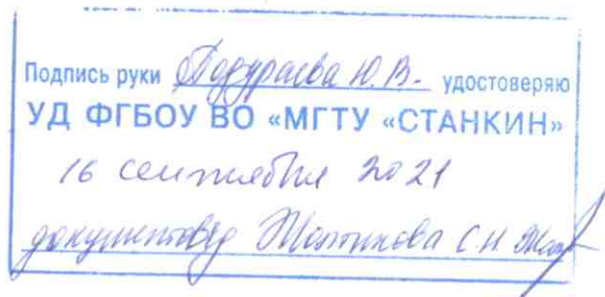 Подпись руки Подураева Ю.В. удостоверяю
УД ФГБОУ ВО «МГТУ «СТАНКИН»
16 сентября 2021
документовед С.Н.